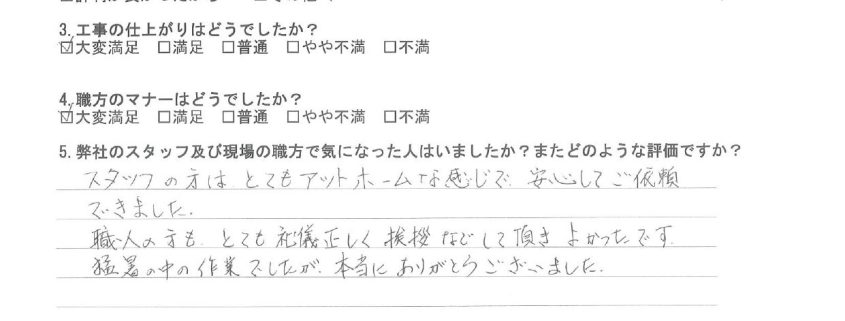 3. 工事の仕上がりはどうでしたか？
☑大変満足 □満足 □普通 □やや不満 □不満
4. 職方のマナーはどうでしたか？
☑大変満足 □満足 □普通 □やや不満 □不満
5. 弊社のスタッフ及び現場の職方で気になった人はいましたか？またどのような評価ですか？
スタッフの方は、とてもアットホームな感じで、安心してご依頼
できました。
職人の方も、とても礼儀正しく挨拶などして頂きよかったです。
猛暑の中の作業でしたが、本当にありがとうございました。